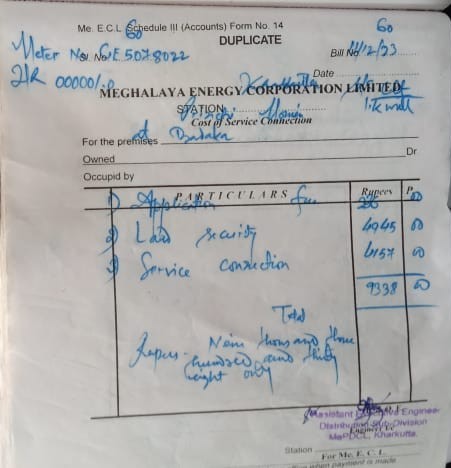 Me. E.C.L Schedule III (Accounts) Form No. 14
60
60
DUPLICATE
Meter No. GE 5078022
Sl. No.
Bill No.
11/12/23
IR 00000/.0
Date
MEGHALAYA ENERGY CORPORATION LIMITED
STATION
Cost of Service Connection
For the premises
at Badaka
Owned
Dr
Occupid by
PARTICULARS Rupees P.
1) Application fee 236 00
2) Load security 4945 00
3) Service connection 4157 00
9338 00
Total
Rupees Nine thousand three
hundred and thirty
height only
Assistant Executive Engineer
Distribution Sub-Division
MePDCL, Kharkutta.
Station
For Me. E. C. L.
When payment is made